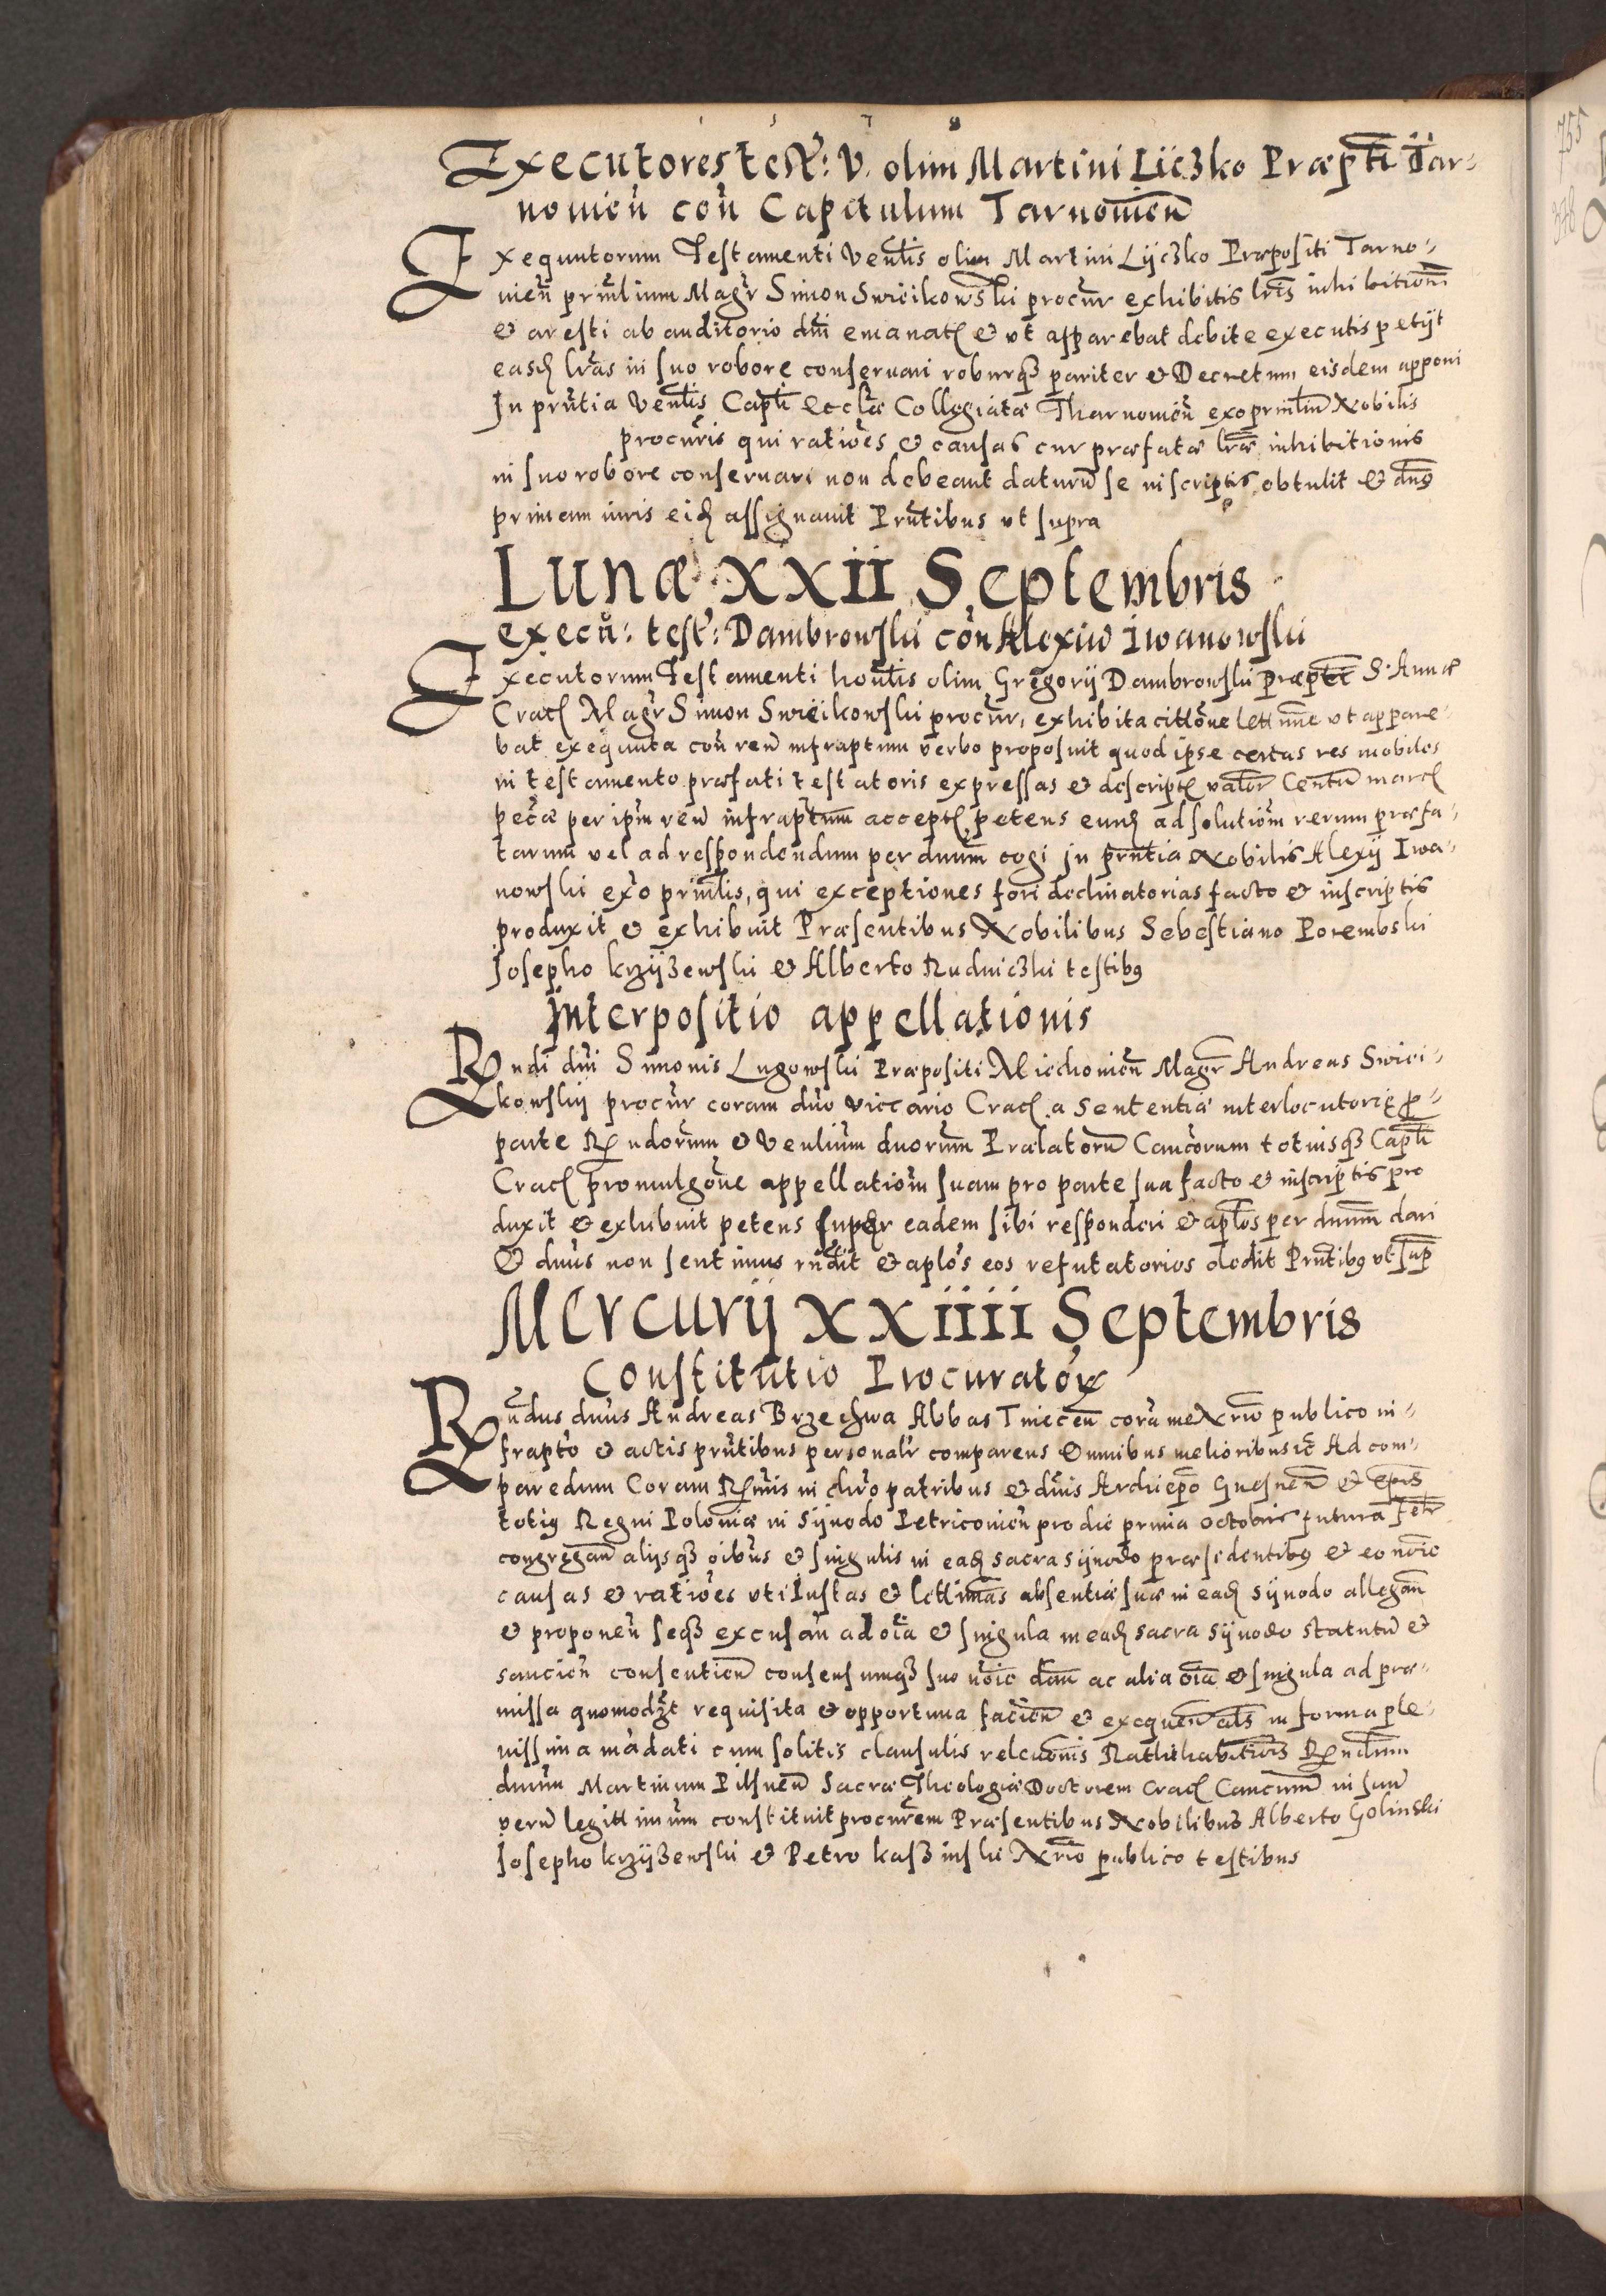 Executores test: V. olim Martini Liiczko Præpti Tar-
novien con Capitulum Tarnovien
Exequutorum Testamenti Venlis olim Martini Lÿczko Præpositi Tarno-
vien prinlium Magr Simon Swieikowski procur exhibitis lris inhibitiom
& aresti ab auditorio dni emanat & vt apparebat debite executis petÿt
easd lras in suo robore conseruari roburq pariter & Decretum eisdem apponi
In prntia Venlis Capti Ecclæ Collegiatæ Tharnovien ex oprinlim Nobilis
procuris qui rationes & causas cur præfatæ lræ inhibitionis
in suo robore conseruari non debeant daturu se in scriptis obtulit & dns
primam iuris eid assignauit Prntibus vt supra
Lunæ XXII Septembris
execu: test: Dambrowski con Alexiu Iwanowski
Executorum Testamenti honlis olim Gregorÿ Dambrowski præpti S. Annæ
Crac Magr Simon Swieikowski procur, exhibita citlone letl nne vt appare-
bat exequuta con reu infraptum verbo proposuit quod ipse certas res mobiles
in testamento præfati testatoris expressas & descript valor Centu marc
pecæ per ipm reu infraptum accept petens eund ad solutiom rerum præfa-
tarum vel ad respondendum per dnum cogi In prntia Nobilis Alexÿ Iwa-
nowski exo prinlis, qui exceptiones fori declinatorias facto & inscriptis
produxit & exhibuit Præsentibus Nobilibus Sebestiano Porembski
Josepho krzÿzewski & Alberto Rudniczki testib9
Interpositio appellationis
Rndi dni Simonis Lugowski Præpositi Miechovien Magr Andreas Swiei-
kowskÿ procur coram duo viccario Crac a sententiæ interlocutorie p
parte Rndorum & Venlium dnorum Prælatoru Canorum totiusq Capti
Crac promulgone appellatiom suam pro parte sua facto & inscriptis pro
duxit & exhibuit petens super eadem sibi responderi & aplos per dnum dari
& dnus non sentimus rndit & aplos eos refutatorios dedit Prntib9 vt sup
Mercurÿ XXIIII Septembris
Constitutio Procurator
Rndus dnus Andreas Brzechwa Abbas Tniecen cora me Nrio publico in-
frapto & actis prntibus personalr comparens Omnibus melioribus ic Ad com-
paredum Coram Rmis in chro patribus & dnis Archiepo Gnesnen & epis
toti9 Regni Poloniæ in Sÿnodo Petricovien pro die prima octobris futura
congregan alÿsq oibus & singulis in ead sacra sÿnodo præsidentib9 & eo noie
causas & rationes vti Iustas & letlimas absentiæ suæ in ead sÿnodo allegan
& proponen seq excusan ad oia & singula in ead sacra sÿnodo statutu &
sancien consentien consensumq suo noie dan ac alia oia & singula ad præ-
missa quomodt requisita & opportuna facien & exequen als in forma ple-
nissima madati cum solitis clausulis releuonis Rathihabitiois Rndum
dnum Martinum Pilsnen Sacræ Theologiæ Doctorem Crac Canonum in suu
veru legitlimum constituit procurem Præsentibus Nobilibus Alberto Golinski
Josepho krzÿzewski & Petro kaszinski Nrio publico testibus